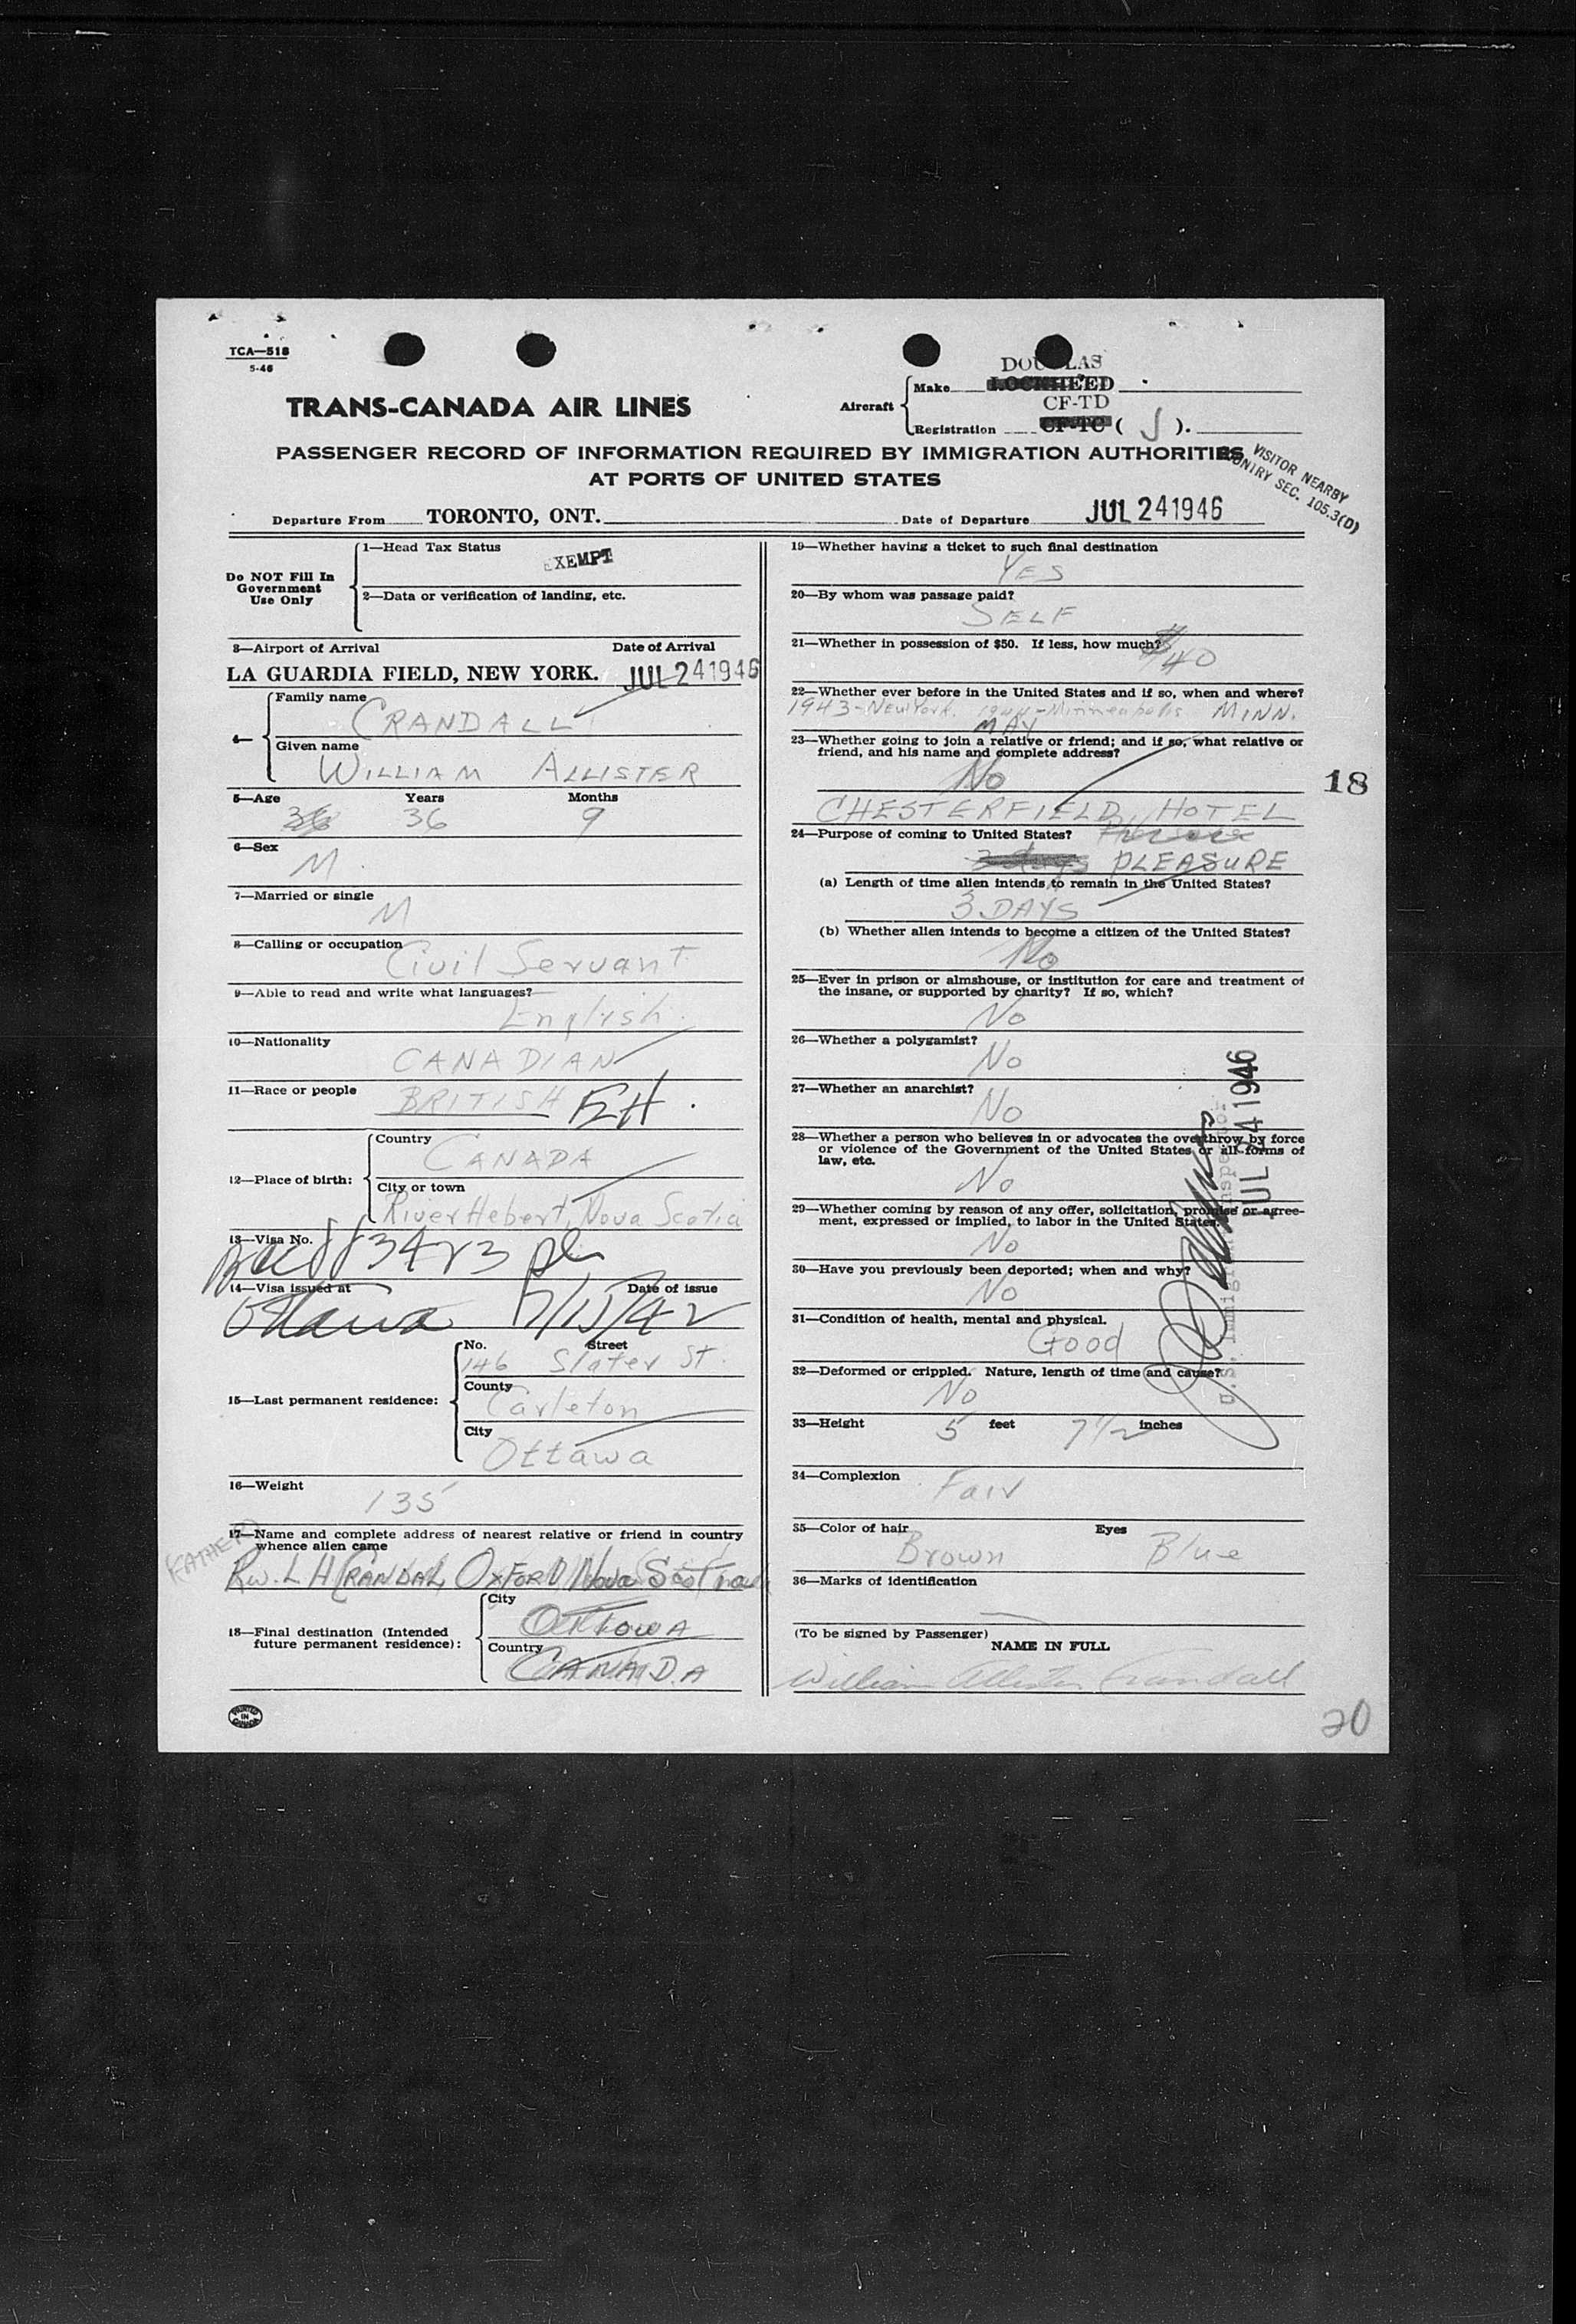 TCA—518
5-46
DOUGLAS
Make LOCKHEED
TRANS-CANADA AIR LINES
Aircraft
CF-TD
Registration CF-TC ( J ).
PASSENGER RECORD OF INFORMATION REQUIRED BY IMMIGRATION AUTHORITIES
AT PORTS OF UNITED STATES
VISITOR NEARBY
SEC. 105.3(D)
Departure From TORONTO, ONT.
Date of Departure JUL 24 1946
Do NOT Fill In
Government
Use Only
1—Head Tax Status
EXEMPT
2—Data or verification of landing, etc.
3—Airport of Arrival Date of Arrival
LA GUARDIA FIELD, NEW YORK. JUL 24 1946
4— Family name
CRANDALL
Given name
WILLIAM ALLISTER
5—Age Years Months
36 36 9
6—Sex
M
7—Married or single
M
8—Calling or occupation
Civil Servant
9—Able to read and write what languages?
English.
10—Nationality
CANADIAN
11—Race or people BRITISH
12—Place of birth:
Country
CANADA
City or town
River Hebert, Nova Scotia
13—Visa No.
14—Visa issued at Date of issue
Ottawa
15—Last permanent residence:
No. Street
146 Slater St.
County
Carleton
City
Ottawa
16—Weight
135
17—Name and complete address of nearest relative or friend in country
whence alien came
FATHER
Rev. L H CRANDAL, OXFORD Nova Scotia
18—Final destination (Intended
future permanent residence):
City
OTTOWA
Country
CANADA
PRINTED
IN
CANADA
19—Whether having a ticket to such final destination
YES
20—By whom was passage paid?
SELF
21—Whether in possession of $50. If less, how much?
$40
22—Whether ever before in the United States and if so, when and where?
1943-New York. 1944-Minneapolis MINN.
MAY
23—Whether going to join a relative or friend; and if so, what relative or
friend, and his name and complete address?
No
CHESTERFIELD HOTEL
24—Purpose of coming to United States?
3 days PLEASURE
(a) Length of time alien intends to remain in the United States?
3 DAYS
(b) Whether alien intends to become a citizen of the United States?
No
25—Ever in prison or almshouse, or institution for care and treatment of
the insane, or supported by charity? If so, which?
No
26—Whether a polygamist?
No
27—Whether an anarchist?
No
28—Whether a person who believes in or advocates the overthrow by force
or violence of the Government of the United States or all forms of
law, etc.
No
29—Whether coming by reason of any offer, solicitation, promise or agree-
ment, expressed or implied, to labor in the United States.
No
30—Have you previously been deported; when and why?
No
31—Condition of health, mental and physical.
Good
32—Deformed or crippled. Nature, length of time and cause?
No
33—Height 5 feet 7 1/2 inches
34—Complexion
Fair
35—Color of hair Eyes
Brown Blue
36—Marks of identification
(To be signed by Passenger)
NAME IN FULL
William Allister Crandall
U.S. Immigrant Inspector
JUL 24 1946
18
20